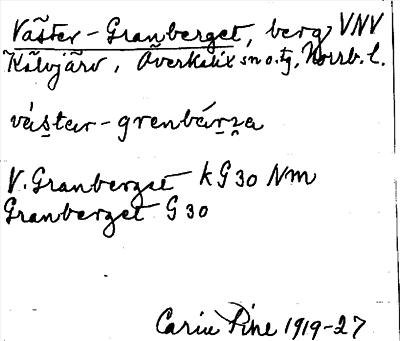 Väster-Granberget, berg VNV
Kälvjärv, Överkalix sn o. tg, Norrb. l.
vás̱tar-grenbárza
V. Granberget k G 30 Nm
Granberget G 30
Carin Pine 1919-27